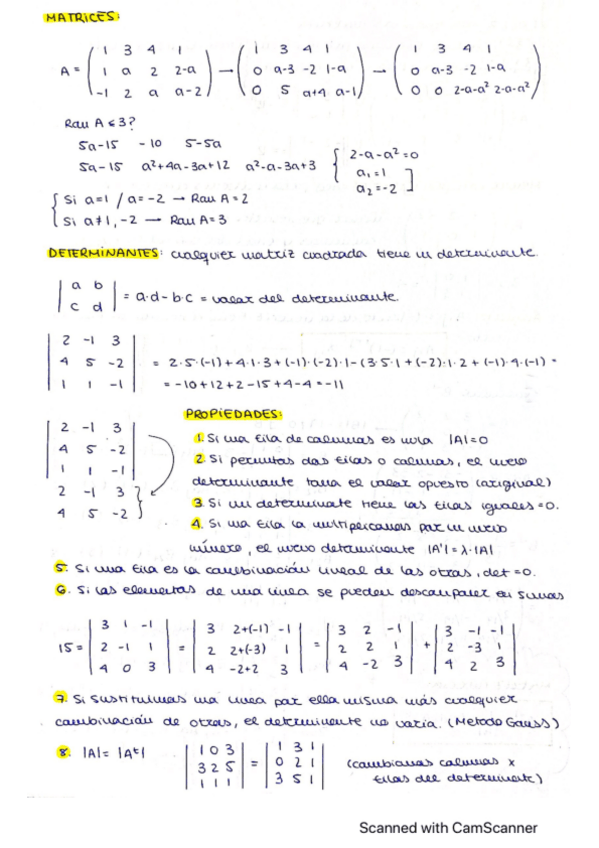 MATRICES:
A = ( 1 3 4 1 ) → ( 1 3 4 1 ) → ( 1 3 4 1 )
( 1 a 2 2-a ) ( 0 a-3 -2 1-a ) ( 0 a-3 -2 1-a )
( -1 2 a a-2 ) ( 0 5 a+4 a-1 ) ( 0 0 2-a-a² 2-a-a² )
Rau A ≤ 3?
5a-15 -10 5-5a
5a-15 a²+4a-3a+12 a²-a-3a+3 { 2-a-a²=0
a₁=1
a₂=-2 ]
{ Si a=1 / a=-2 → Rau A=2
Si a≠1,-2 → Rau A=3
DETERMINANTES: cualquier matriz cuadrada tiene un determinante.
| a b |
| c d | = a·d-b·c = valor del determinante.
| 2 -1 3 |
| 4 5 -2 | = 2·5·(-1)+4·1·3+(-1)·(-2)·1-(3·5·1+(-2)·1·2+(-1)·4·(-1) =
| 1 1 -1 | = -10+12+2-15+4-4=-11
PROPIEDADES:
| 2 -1 3 |
| 4 5 -2 |
| 1 1 -1 |
2 -1 3 }
4 5 -2
1. Si una fila de columnas es nula |A|=0
2. Si permutas dos filas o columnas, el nuevo
determinante toma el valor opuesto (original)
3. Si un determinate tiene las filas iguales =0.
4. Si una fila la multiplicamos por un nuevo
número, el nuevo determinante |A'|=λ·|A|
5. Si una fila es la combinación lineal de las otras, det =0.
6. Si los elementos de una línea se pueden descomponer en sumas
15 = | 3 1 -1 | = | 3 2+(-1) -1 | = | 3 2 -1 | + | 3 -1 -1 |
| 2 -1 1 | | 2 2+(-3) 1 | | 2 2 1 | | 2 -3 1 |
| 4 0 3 | | 4 -2+2 3 | | 4 -2 3 | | 4 2 3 |
7. Si sustituimos una línea por ella misma más cualquier
combinación de otras, el determinante no varía. (Metodo Gauss)
8. |A|= |Aᵗ| | 1 0 3 | = | 1 3 1 | (cambiamos columnas x
| 3 2 5 | | 0 2 1 | filas del determinante)
| 1 1 1 | | 3 5 1 |
Scanned with CamScanner